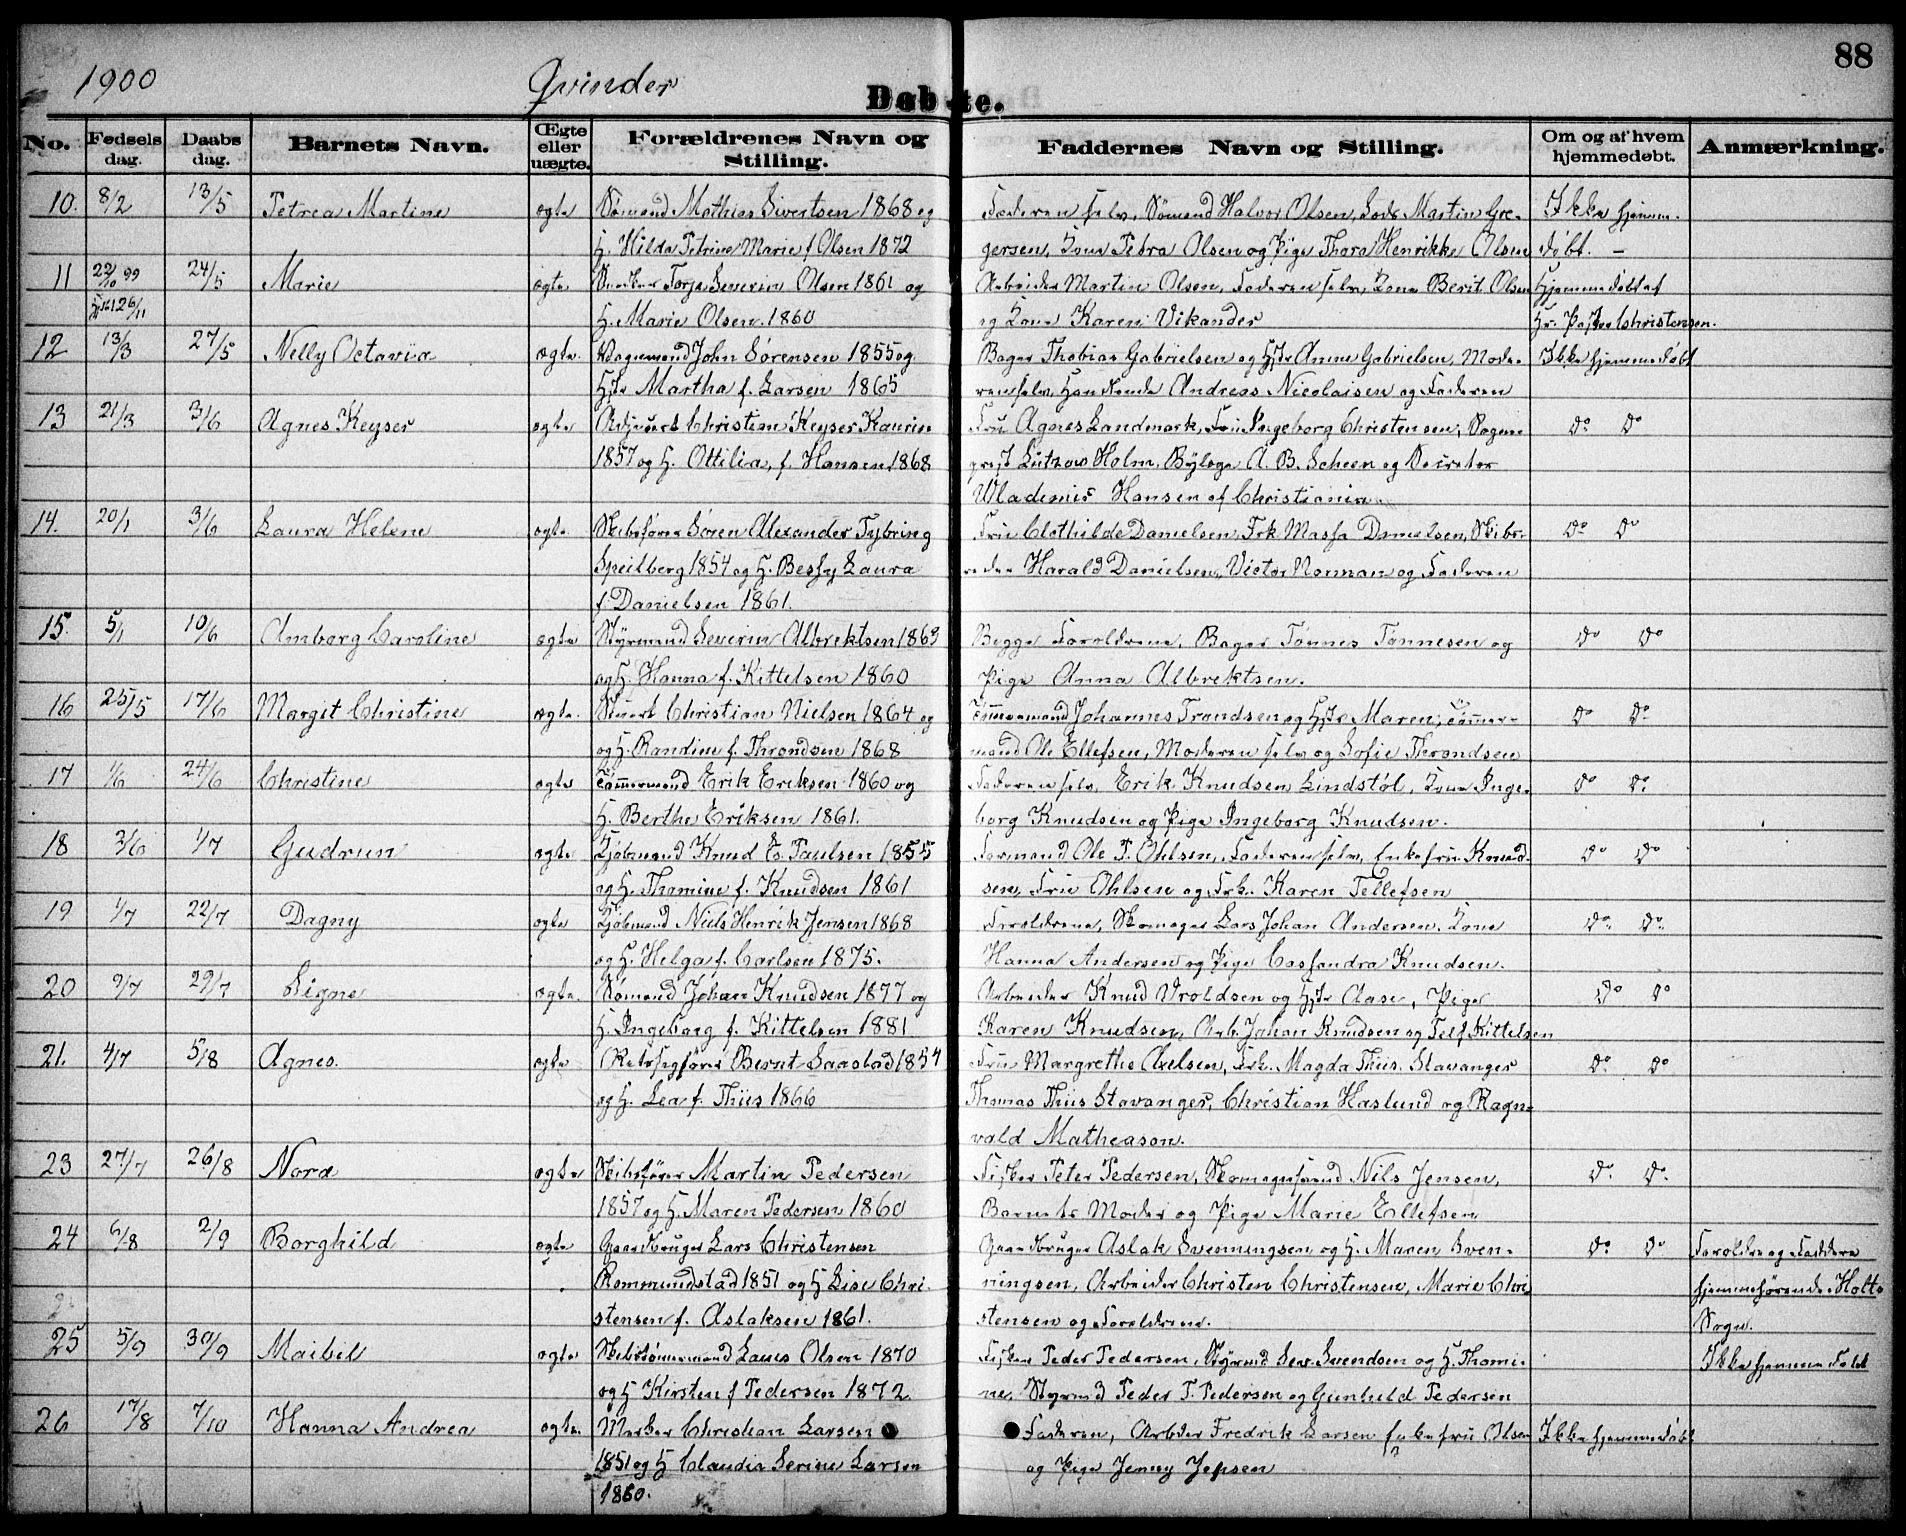 88
1900 Qvinder
Døbte.
No. Fødsels dag. Daabs dag. Barnets Navn. Ægte eller uægte. Forældrenes Navn og Stilling. Faddernes Navn og Stilling. Om og af hvem hjemmedøbt. Anmærkning.
10. 8/2 13/5 Petrea Martine ægte Sømand Mathias Sivertsen 1868 og Faderen selv, Sømand Halvor Olsen, Lods Martin Gre- Ikke hjemme-
H. Hilda Petrine Marie f. Olsen 1872 gersen, Kone Petra Olsen og Pige Thora Henrikke Olsen døbt. –
11 22/10 99 24/5 Marie ægte Snedker Torje Severin Olsen 1861 og Arbeider Martin Olsen, Faderen selv, Kone Berit Olsen Hjemmedøbt af
26/11 H. Marie Olsen 1860 og Kone Karen Vikander Hr. Pastor Christensen.
12 13/3 27/5 Nelly Octavia ægte. John Sørensen 1855 og Bager Thobias Gabrielsen og Hstr Anne Gabrielsen, Mode- Ikke hjemmedøbt
Hstr Martha f. Larsen 1865 ren selv, Handlende Andreas Nicolaisen og Faderen
13 21/3 3/6 Agnes Keyser ægte Adjunct Christian Keyser Kaurin Fru Agnes Landmark, Fru Ingeborg Christensen, Sogne- do do
1857 og H. Ottilia, f. Hansen 1868 prest Lützow Holm, Bylæge A. B. Scheen og
Wladimir Hansen af Christiania.
14. 20/1 3/6 Laura Helene ægte. Skibsfører Søren Alexander Tybring Fru Clothilde Danielsen, Frk Massa Danielsen, Skibs- do do
Speilberg 1854 og H. Bessy Laura reder Harald Danielsen, Victor Norman og Faderen
f. Danielsen 1861.
15. 5/1 10/6 Amborg Caroline ægte Styrmand Severin Albrektsen 1863 Begge Forældrene, Bager Tønnes Tønnesen og do do
og H. Hanna f. Kittelsen 1860 Pige Anna Albrektsen.
16 25/5 17/6 Margit Christine ægte. Stuert Christian Nielsen 1864 og Tømmermand Johannes Trondsen og Hstr Maren, Tømmer- do do
og H. Randine f. Throndsen 1868 mand Ole Ellefsen, Moderen selv og Sofie Throndsen
17 1/6 24/6 Christine ægte Tømmermand Erik Eriksen 1860 og Faderen selv, Erik Knudsen Lindstøl, Kone Inge- do do
H. Berthe Eriksen 1861. borg Knudsen og Pige Ingeborg Knudsen.
18 3/6 1/7 Gudrun ægte Kjøbmand Knud E. Paulsen 1855 Formand Ole P. Ohlsen, Faderen selv, Enkefru Knud- do do
og H. Thomine f. Knudsen 1861 sen, Fru Ohlsen og Frk. Karen Tellefsen
19 1/7 22/7 Dagny ægte Kjøbmand Niels Henrik Jensen 1868 Forældrene, Skomager Lars Johan Andersen, Kone do do
og H. Helga f. Carlsen 1875. Hanna Andersen og Pige Cassandra Knudsen.
20 9/7 29/7 Signe ægte. Sømand Johan Knudsen 1877 og Arbeider Knud Vroldsen og Hstr Aase, Pige do do
H. Ingeborg f. Kittelsen 1881 Karen Knudsen, Arb. Johan Knudsen og Telf Kittelsen
21. 4/7 5/8 Agnes. ægte Bernt Saastad 1854 Fru Margrethe Axelsen, Frk. Magda Thiis Stavanger do do
og H. Lea f. Thiis 1866 Thomas Thiis Stavanger, Christian Haslund og Ragn-
vald Matheason.
23 27/7 26/8 Nora ægte Skibsfører Martin Pedersen Fisker Peter Pedersen, Skomagersvend Nils Jensen, do do
1857 og H. Maren Pedersen 1860 Barnets Moder og Pige Marie Ellefsen
24 6/8 2/9 Borghild ægte Gaardbruger Lars Christensen Gaardbruger Aslak Svenningsen og H. Maren Sven- do do Forældre og Faddere
Rommundstad 1851 og H Lise Chri- ningsen, Arbeider Christen Christensen, Marie Chri- hjemmehørende Holts
stensen f. Aslaksen 1861. stensen og Forældrene. Sogn.
25 5/9 30/9 Maibil ægte Skibstømmermand Laurs Olsen 1870 Fisker Peder Pedersen, Styrmd Sev. Svendsen og H. Thomi- Ikke hjemmedøbt
og H Kirsten f Pedersen 1872 ne, Styrmd Peder T. Pedersen og Gunhild Pedersen
26 17/8 7/10 Hanna Andrea ægte. Murer Christian Larsen Faderen, Arbeider Fredrik Larsen Enkefru Olsen Ikke hjemmedøbt
1851 og H Claudia Serine Larsen og Pige Jenny Jepsen
1860.